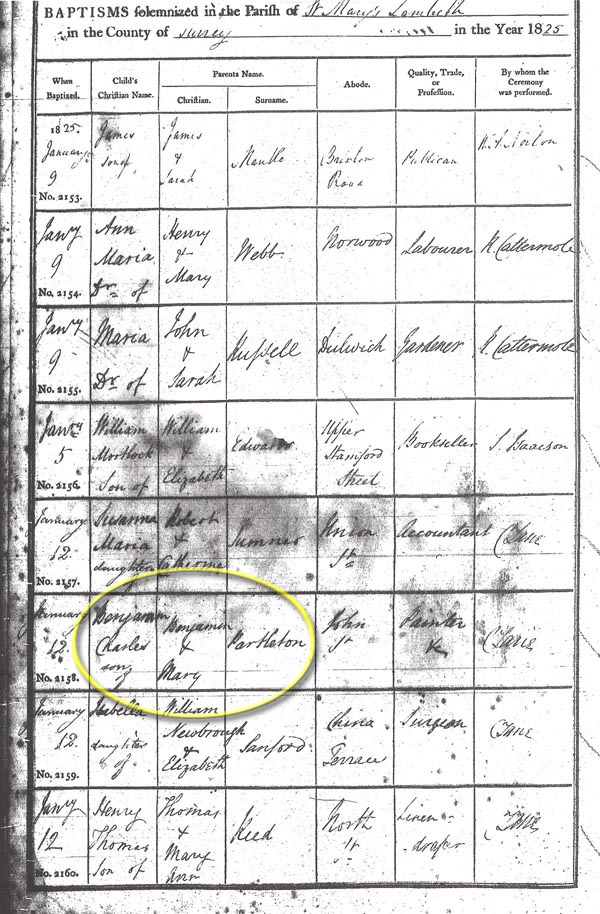 BAPTISMS solemnized in the Parish of St Mary's Lambeth
in the County of Surrey in the Year 1825
When Baptized.
Child's Christian Name.
Parents Name.
Christian.
Surname.
Abode.
Quality, Trade, or Profession.
By whom the Ceremony was performed.
1825.
January
9
No. 2153.
James
son of
James
&
Sarah
Mantle
Brixton
Road
Publican
Jany
9
No. 2154.
Ann
Maria
Dr of
Henry
&
Mary
Webb
Norwood
Labourer
R. Cattermole
Jany
9
No. 2155.
Maria
Dr of
John
&
Sarah
Russell
Dulwich
Gardener
R. Cattermole
Jany
5
No. 2156.
William
Mortlock
Son of
William
&
Elizabeth
Edwards
Upper
Stamford
Street
Bookseller
S. Isaacson
January
12.
No. 2157.
Susanna
Maria
daughter
Robert
&
Catherine
Sumner
Union
St
Accountant
C Lane
January
12.
No. 2158.
Benjamin
Charles
son
of
Benjamin
&
Mary
Partleton
John
St
Painter
C Lane
January
12.
No. 2159.
Isabella
daughter
of
William
Newbrough
&
Elizabeth
Sanford
China
Terrace
Surgeon
C Lane
Jany
12
No. 2160.
Henry
Thomas
Son of
Thomas
&
Mary
Ann
Reed
North
St
Linen-
draper
C Lane